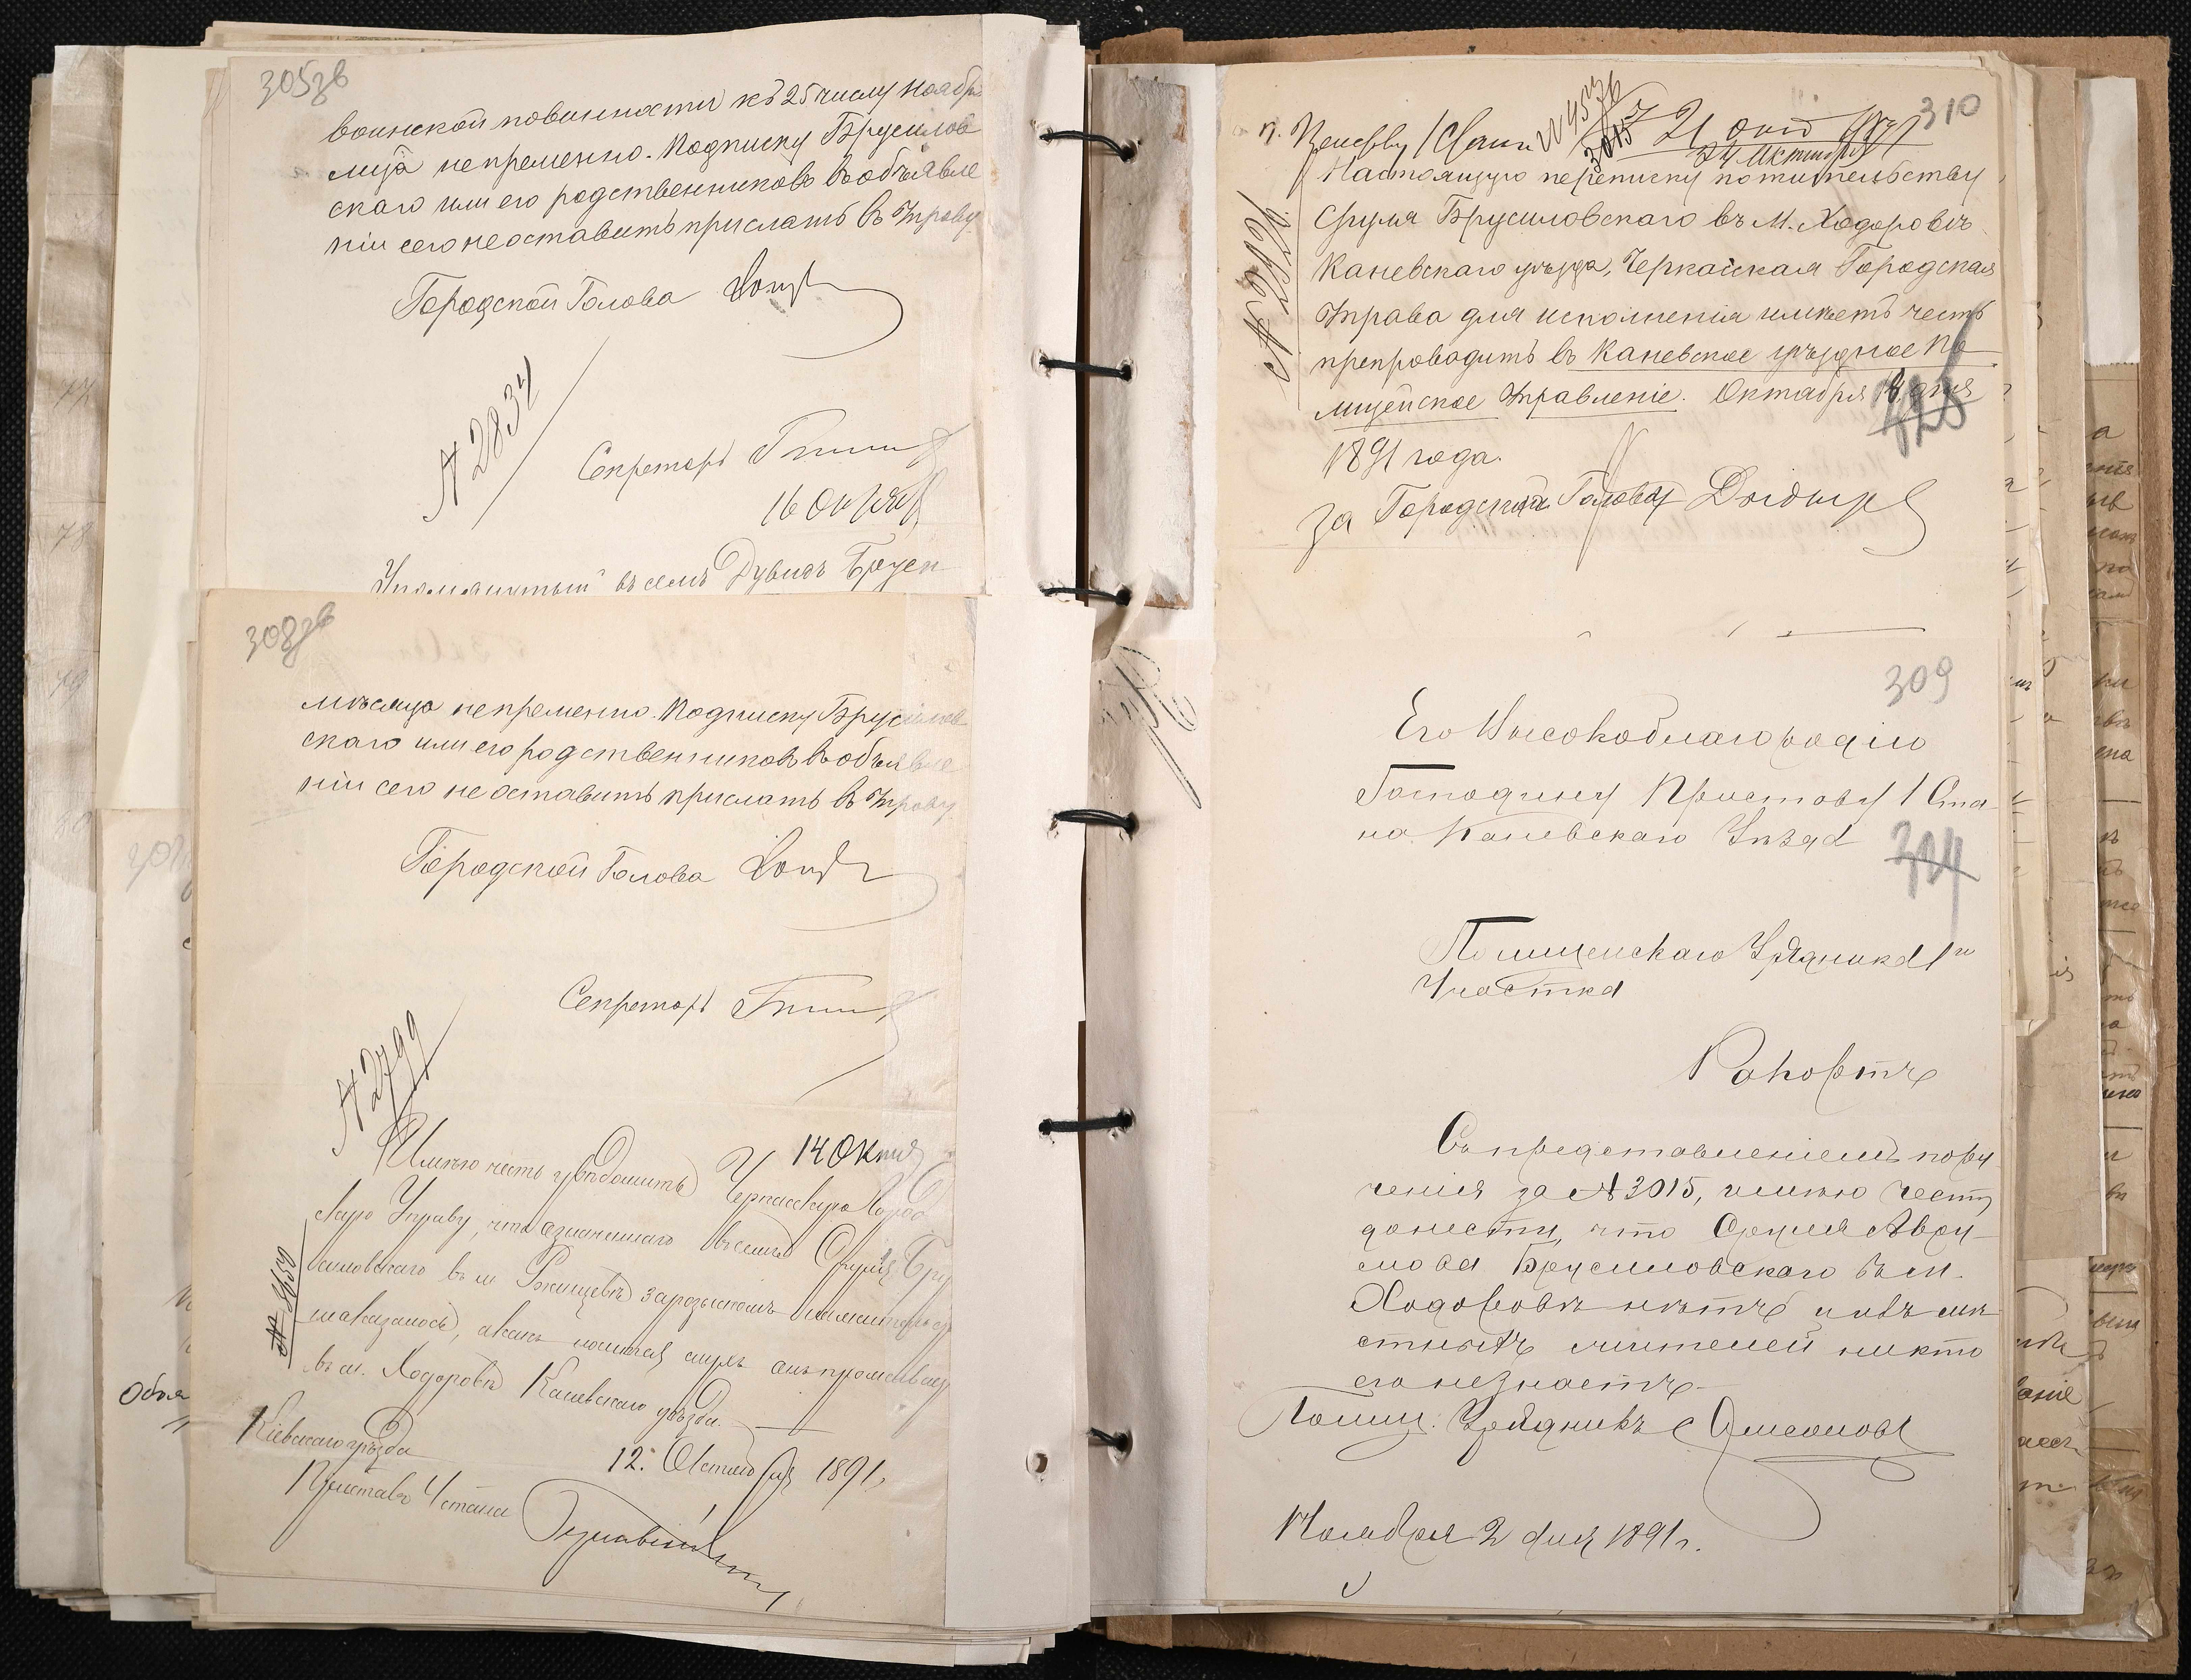 305зв
воинской повинности къ 25 числу Ноябр
мца непременно. Подписку Брусилов
скаго или его родственниковъ въ объявле
ніи сего не оставить прислать въ Управу
Городской Голова
№ 2834
Секретарь
16 Окт
Упомянутый въ семъ Дувидъ Брусил
308зв
мѣсяца непременно. Подписку Брусилов
скаго или его родственниковъ въ объявле
ніи сего не оставить прислать въ Управу
Городской Голова
Секретарь
№ 2799
14 Октя
Имѣю честь увѣдомить Черкасскую Город
скую Управу, что означеннаго въ семъ Сруля Бру
силовскаго въ м. Ржищевѣ за розыскомъ
не оказалось, а какъ носится слухъ онъ проживаетъ
въ м. Ходоровѣ Каневскаго уѣзда.
12. Октября 1891
Кіевскаго уѣзда
Приставъ 4 стана
Объя
310
21 окт 1891
3015
24 Октября
Настоящую переписку по жительству
Сруля Брусиловскаго въ М. Ходоровѣ
Каневскаго уѣзда, Черкасская Городская
Управа для исполненія имѣетъ честь
препроводить въ Каневское уѣздное По
лицейское Управленіе. Октября 18 дня
1891 года.
за Городскаго Голову
309
Его Высокоблагородію
Господину Приставу 1 Ста
на Каневскаго Уѣзда
304
Полицейскаго Урядника 1го
Участка
Рапортъ
Съ представленіемъ пору
ченія за № 3015, имѣю честь
донести, что Сруля Авру
мова Брусиловскаго въ м.
Ходоровѣ нѣтъ и изъ мѣ
стныхъ жителей никто
его не знаетъ
Полиц. Урядникъ
Ноября 2 дня 1891 г.